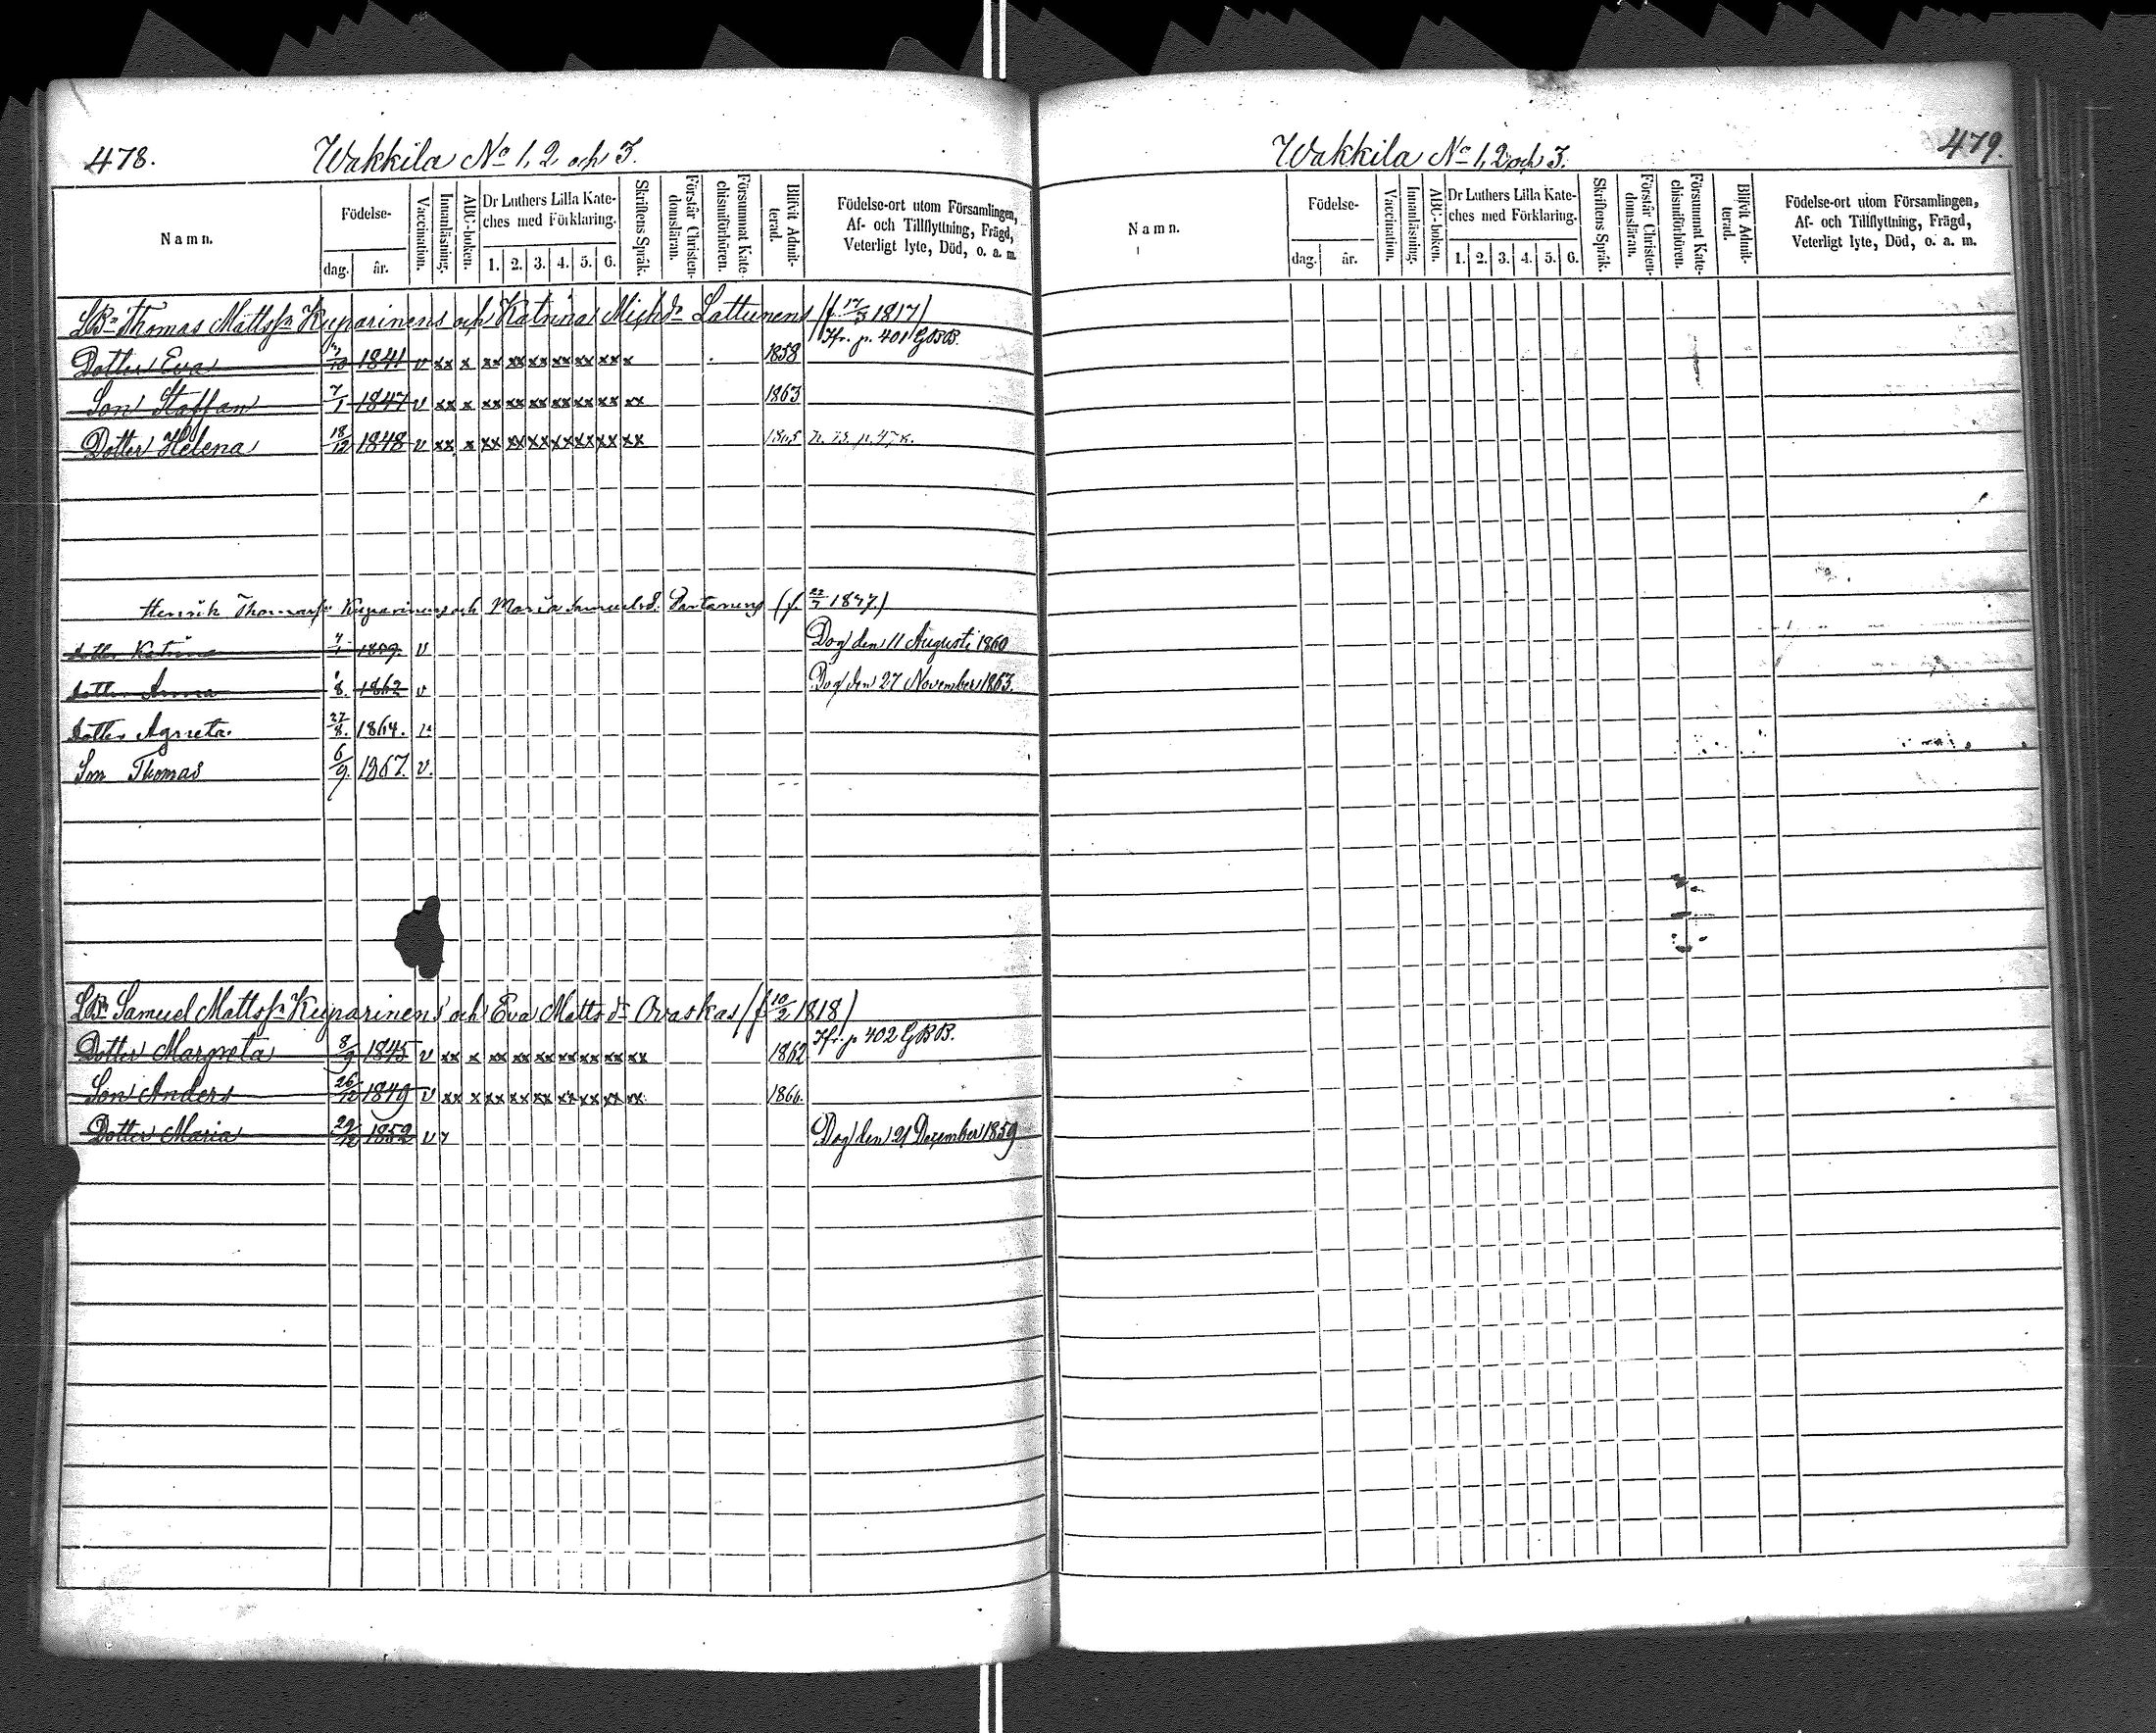 478.
Wakkila No 1, 2 och 3.
Namn.
Födelse-
dag.
år.
Vaccination.
Innanläsning.
ABC-boken.
Dr Luthers Lilla Kate-
ches med Förklaring.
1. 2. 3. 4. 5. 6.
Skriftens Språk.
Förstår Christen-
domsläran.
Försummat Kate-
chismiförhören.
Blifvit Admit-
terad.
Födelse-ort utom Församlingen,
Af- och Tillflyttning, Frägd,
Veterligt lyte, Död, o. a. m.
Thomas Mattss Kuparinens och Katrina Michdr Lattunens (f. 17/3 1817)
Jfr. p. 401 GBB.
Dotter Eva 1841 v xx x xx xx xx xx xx xx x 1858
Son Staffan 7/1 1847 v xx x xx xx xx xx xx xx xx 1863
Dotter Helena 18/12 1848 v xx x xx xx xx xx xx xx xx 1865
Henrik Thomass Kuparinens och Maria Samuelsd. Partanens
Dotter Katrina 1859. v Dog den 11 Augusti 1860
Dotter Anna 8. 1862 v Dog den 27 November 1863.
Dotter Agneta. 27/8. 1864. v
Son Thomas 6/9 1867. v.
Samuel Mattss Kuparinens och Eva Mattsdr Ovaskas (f 10/2 1818)
Jfr. p 402 GBB.
Dotter Margreta 8/9 1845 v xx x xx xx xx xx xx xx xx 1862
Son Anders 26/12 1849 v xx x xx xx xx xx xx xx xx 1866.
Dotter Maria 29/12 1852 v Dog den 21 December 1859
Wakkila No 1, 2 och 3.
479.
Namn.
Födelse-
dag.
år.
Vaccination.
Innanläsning.
ABC-boken.
Dr Luthers Lilla Kate-
ches med Förklaring.
1. 2. 3. 4. 5. 6.
Skriftens Språk.
Förstår Christen-
domsläran.
Försummat Kate-
chismiförhören.
Blifvit Admit-
terad.
Födelse-ort utom Församlingen,
Af- och Tillflyttning, Frägd,
Veterligt lyte, Död, o. a. m.